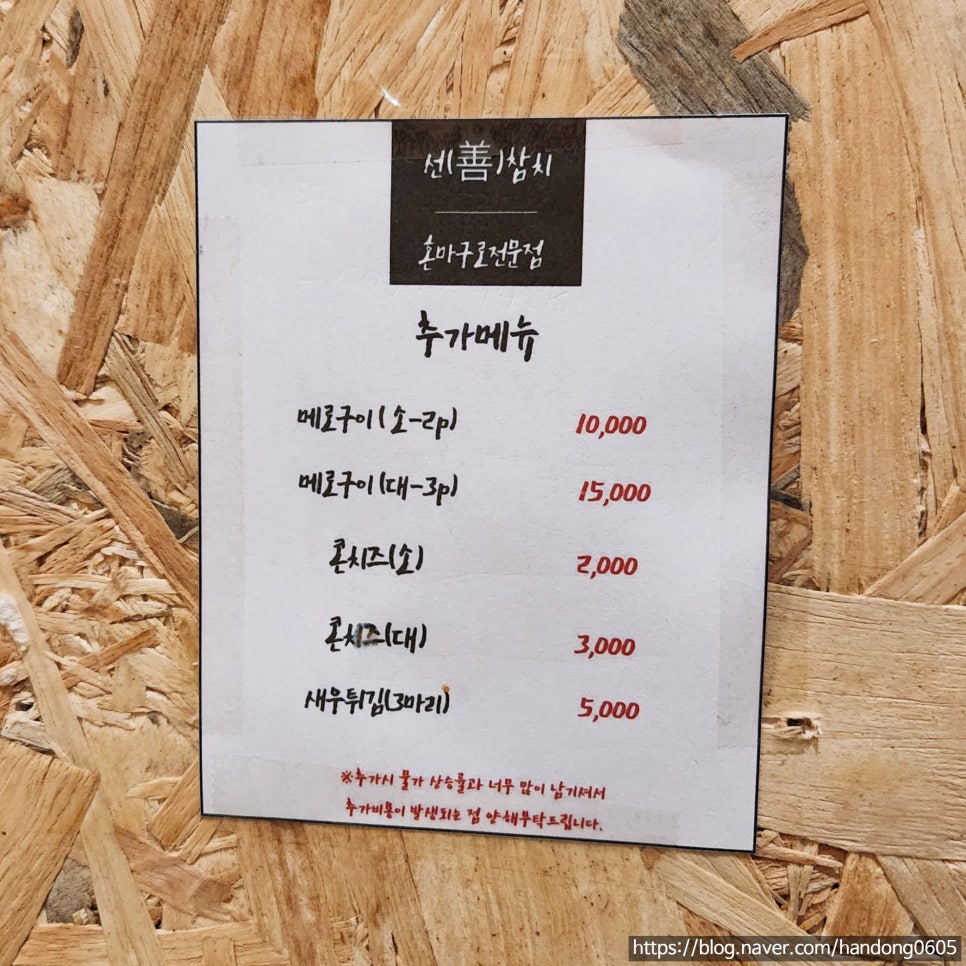 선(善)참치
혼마구로전문점
추가메뉴
메로구이(소-2p) 10,000
메로구이(대-3p) 15,000
콘치즈(소) 2,000
콘치즈(대) 3,000
새우튀김(3마리) 5,000
※추가시 물가 상승률과 너무 많이 남기셔서
추가비용이 발생되는 점 양해부탁드립니다.
https://blog.naver.com/handong0605